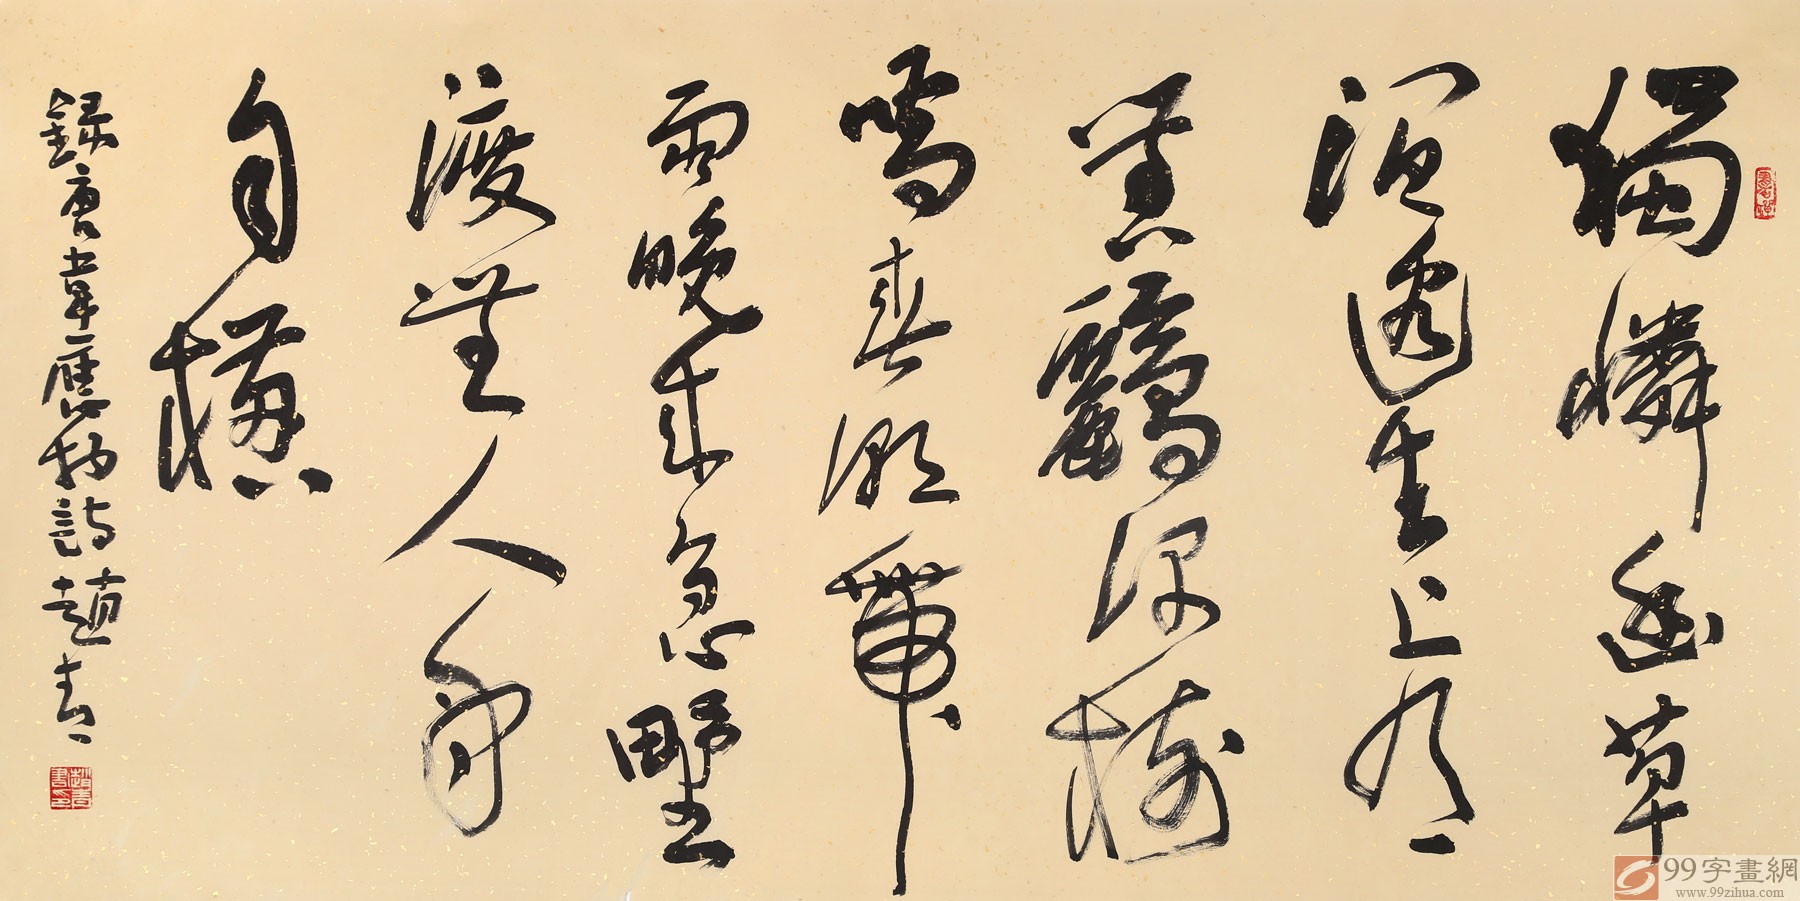 獨憐幽草
澗邊生上有
黃鸝深樹
鳴春潮帶
雨晚來急野
渡無人舟
自橫
錄唐韋應物詩趙青
趙青書印
99字畫網
www.99zihua.com